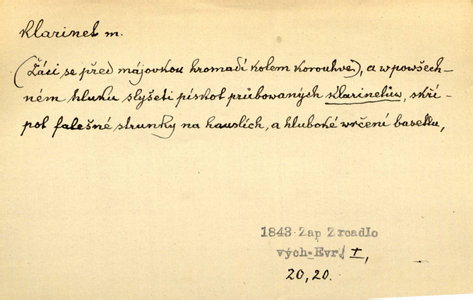 Klarinet m.
(Žáci se před májovkou hromadí kolem korouhve), a w powšech-
ném hluku slyšeti pískot průbowaných klarinetůw, skří-
pot falešné strunky na houslích, a hluboké wrčení basetlu,
1843 Zap Zrcadlo
vých-Evr. I,
20,20.